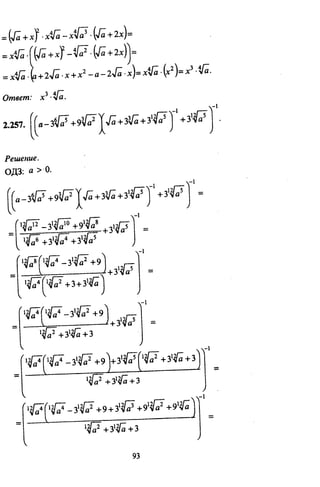 = (√a + x)² · x∜a − x∜a³ · (∜a + 2x) =
= x∜a · ((√a + x)² − ∜a² · (√a + 2x)) =
= x∜a · (a + 2√a · x + x² − a − 2√a · x) = x∜a · (x²) = x³ · ∜a.
Ответ: x³ · ∜a.
2.257. ((a − 3⁶√a⁵ + 9³√a²)(√a + 3³√a + 3¹²√a⁵)⁻¹ + 3¹²√a⁵)⁻¹.
Решение.
ОДЗ: a > 0.
((a − 3⁶√a⁵ + 9³√a²)(√a + 3³√a + 3¹²√a⁵)⁻¹ + 3¹²√a⁵)⁻¹ =
= ((¹²√a¹² − 3¹²√a¹⁰ + 9¹²√a⁸) / (¹²√a⁶ + 3¹²√a⁴ + 3¹²√a⁵) + 3¹²√a⁵)⁻¹ =
= (¹²√a⁸(¹²√a⁴ − 3¹²√a² + 9) / (¹²√a⁴(¹²√a² + 3 + 3¹²√a)) + 3¹²√a⁵)⁻¹ =
= (¹²√a⁴(¹²√a⁴ − 3¹²√a² + 9) / (¹²√a² + 3¹²√a + 3) + 3¹²√a⁵)⁻¹ =
= ((¹²√a⁴(¹²√a⁴ − 3¹²√a² + 9) + 3¹²√a⁵(¹²√a² + 3¹²√a + 3)) / (¹²√a² + 3¹²√a + 3))⁻¹ =
= (¹²√a⁴(¹²√a⁴ − 3¹²√a² + 9 + 3¹²√a³ + 9¹²√a² + 9¹²√a) / (¹²√a² + 3¹²√a + 3))⁻¹ =
93